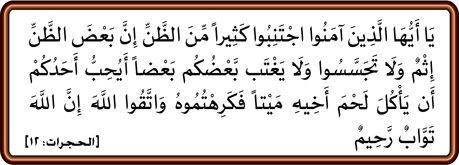 يَا أَيُّهَا الَّذِينَ آمَنُوا اجْتَنِبُوا كَثِيراً مِّنَ الظَّنِّ إِنَّ بَعْضَ الظَّنِّ
إِثْمٌ وَلَا تَجَسَّسُوا وَلَا يَغْتَب بَّعْضُكُم بَعْضاً أَيُحِبُّ أَحَدُكُمْ
أَن يَأْكُلَ لَحْمَ أَخِيهِ مَيْتاً فَكَرِهْتُمُوهُ وَاتَّقُوا اللَّهَ إِنَّ اللَّهَ
تَوَّابٌ رَّحِيمٌ [الحجرات: ١٢]